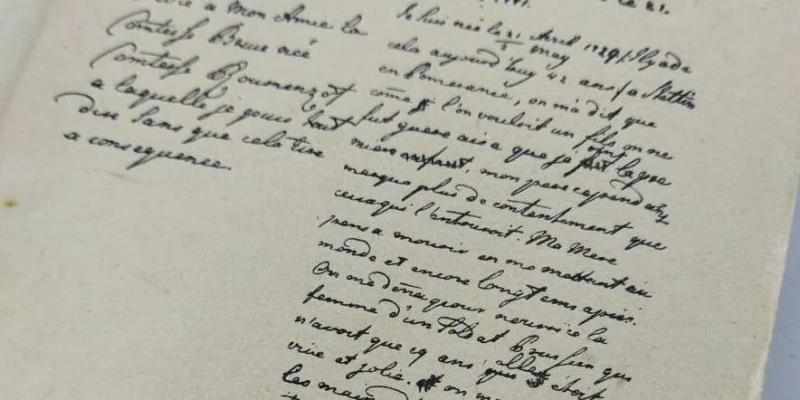 a mon Amie la
Comtesse Bruce née
Comtesse Roumenzof
a laquelle je puis tout
dire sans que cela tire
a consequence.
le 21.
Je suis née le 21 Avril 1729 il y a de
2 May
cela aujourd'huy 42 ans a Stettin
en Pomeranie, on m'a dit que
come l'on vouloit un fils on ne
fut guere aise que je la
mon pere cependant
marqua plus de contentement que
ceux qui l'entouroit. Ma Mere
pensa mourir en me mettant au
monde et encore longtems après.
On me dona pour nourrice la
femme d'un Soldat Prussien qui
n'avoit que 19 ans, elle etoit
vive et jolie. on me
les mains